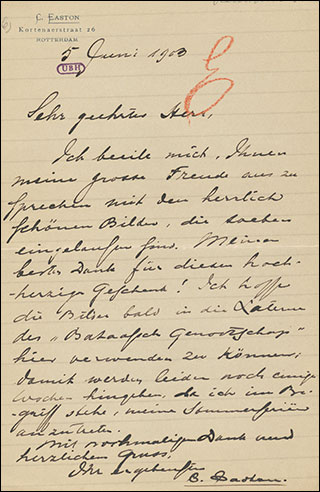 C. EASTON
Kortenaerstraat 26
ROTTERDAM
5 Juni 1903
UBH
Sehr geehrter Herr,
Ich beeile mich, Ihnen
meine grosse Freude aus zu
sprechen mit den herrlich
schönen Bilder, die soeben
eingelaufen sind. Meinen
besten Dank für dieses hoch-
herzige Geschenk! Ich hoffe
die Bilder bald in die Laterne
des „Bataafsch Genootschap"
hier verwenden zu können;
damit werden leider noch einige
Wochen hingehen, da ich im Be-
griff stehe, meine Sommerferien
anzutreten.
Mit nochmaligem Dank und
herzlichem Gruss,
Ihr ergebenster
C. Easton.